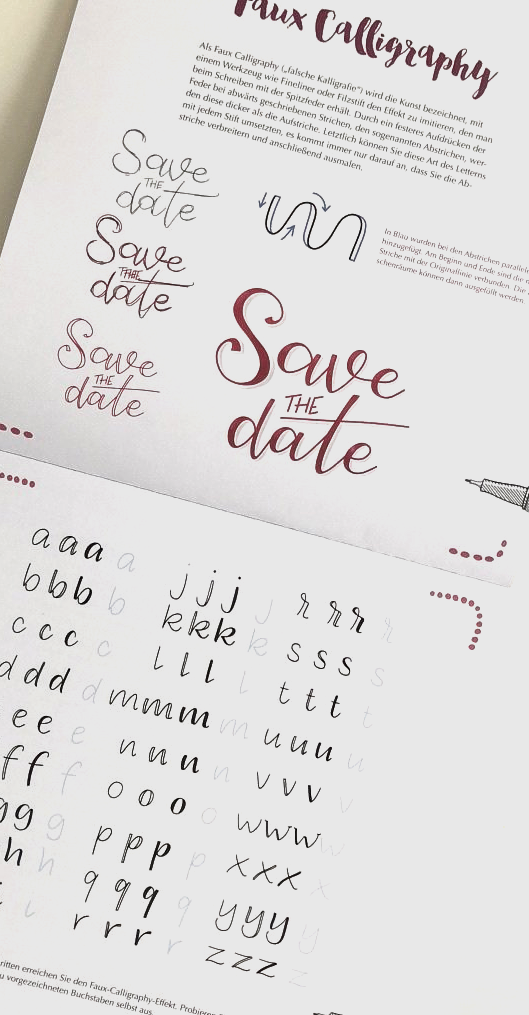 Faux Calligraphy
Als Faux Calligraphy („falsche Kalligrafie“) wird die Kunst bezeichnet, mit
einem Werkzeug wie Fineliner oder Filzstift den Effekt zu imitieren, den man
beim Schreiben mit der Spitzfeder erhält. Durch ein festeres Aufdrücken der
Feder bei abwärts geschriebenen Strichen, den sogenannten Abstrichen, wer-
den diese dicker als die Aufstriche. Letztlich können Sie diese Art des Letterns
mit jedem Stift umsetzten, es kommt immer nur darauf an, dass Sie die Ab-
striche verbreitern und anschließend ausmalen.
Save
THE
date
In Blau wurden bei den Abstrichen parallel
hinzugefügt. Am Beginn und Ende sind die
Striche mit der Originallinie verbunden. Die
schenräume können dann ausgefüllt werden.
Save
THE
date
Save
THE
date
Save
THE
date
a a a a j j j j r r r r
b b b b k k k k s s s s
c c c c l l l l t t t t
d d d d m m m m u u u u
e e e n n n n v v v v
f f f o o o o w w w w
g g g p p p p x x x x
h h q q q q y y y y
i r r r r z z z z
ritten erreichen Sie den Faux-Calligraphy-Effekt. Probieren
u vorgezeichneten Buchstaben selbst aus.